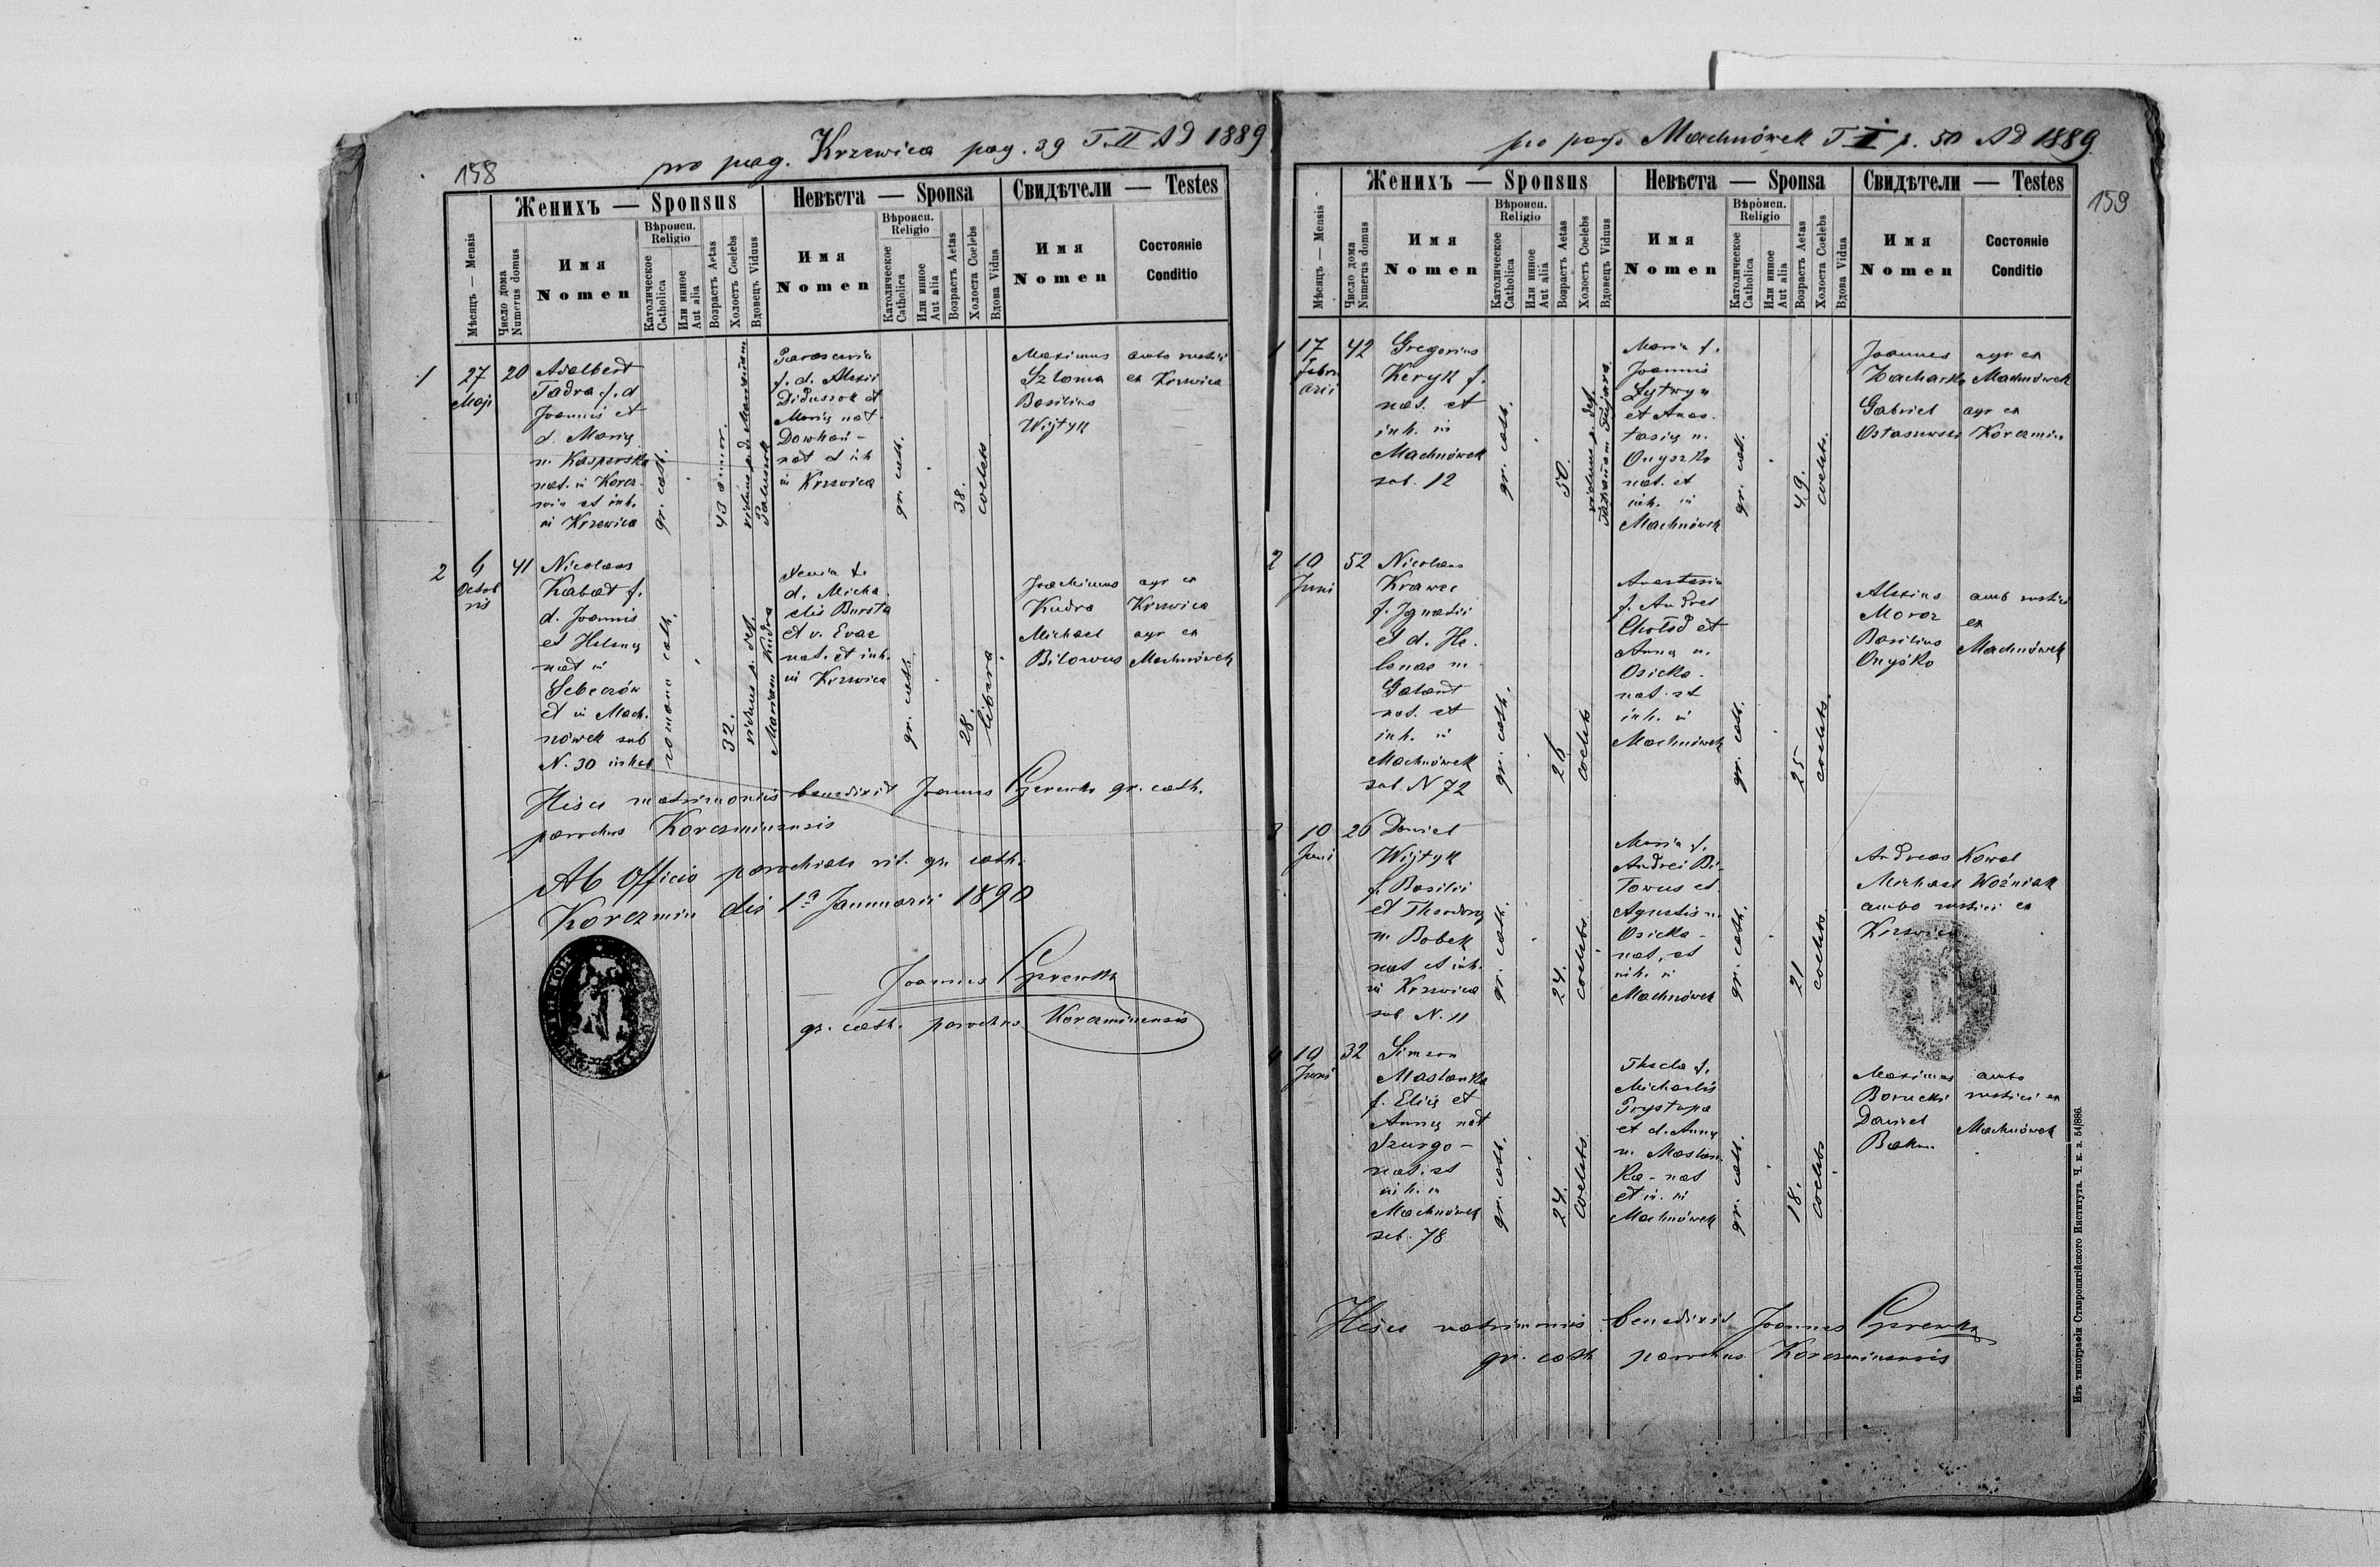 158
pro pag. Krzewica pag. 39 T. II AD 1889
Женихъ — Sponsus
Невѣста — Sponsa
Свидѣтели — Testes
Мѣсяцъ — Mensis
Число дома
Numerus domus
Имя
Nomen
Вѣроисп.
Religio
Католическое
Catholica
Или инное
Aut alia
Возрастъ Aetas
Холостъ Coelebs
Вдовецъ Viduus
Имя
Nomen
Вѣроисп.
Religio
Католическое
Catholica
Или инное
Aut alia
Возрастъ Aetas
Холоста Coelebs
Вдова Vidua
Имя
Nomen
Состояніе
Conditio
1
27
Maji
20
Adalbert
Tadra f. d
Joannis et
d. Mariy
n. Kasperska
nat. in Korcz-
min et inh.
in Krzewica
gr. cath.
43 annor.
Parascevia
f. d. Alexii
Diduszok et
Mariy nat
Dowhań-
nat et inh
in Krzewica
gr. cath.
38.
coelebs
Maximus
Szloma
Basilius
Wijtyk
ambo rustici
ex Krzewica
2
6
Octob
ris
41
Nicolaus
Kabat f.
d. Joannis
et Heleny
nat in
Sebeczów
et in Mach.
nówek sub
N. 30 inhab
romano cath.
32.
viduus p. def.
Mariam Kudra
Xenia f.
d. Micha
elis Bursta
et v. Evae
nat. et inh.
in Krzewica
gr. cath.
28.
libera
Joachimus
Kudra
Michael
Bilowus
agr ex
Krzewica
agr ex
Machnówek
Hisce matrimoniis benedixit Joannes gr. cath.
parochus Korczminensis
Ab Officio parochiale rit. gr. cath.
Korczmin die 1a Januarii 1890
Joannes
gr. cath. parochus Korczminensis
159
pro pago Machnówek T I p. 50 AD 1889
Женихъ — Sponsus
Невѣста — Sponsa
Свидѣтели — Testes
Мѣсяцъ — Mensis
Число дома
Numerus domus
Имя
Nomen
Вѣроисп.
Religio
Католическое
Catholica
Или инное
Aut alia
Возрастъ Aetas
Холостъ Coelebs
Вдовецъ Viduus
Имя
Nomen
Вѣроисп.
Religio
Католическое
Catholica
Или инное
Aut alia
Возрастъ Aetas
Холоста Coelebs
Вдова Vidua
Имя
Nomen
Состояніе
Conditio
1
17
Febru
arii
42
Gregorius
Keryk f.
nat. et
inh. in
Machnówek
sub. 12
gr. cath.
50.
viduus p. def.
Maria f.
Joannis
Lytwyn
et Anas.
tasiy n.
Onyszko
nat. et
inh. in
Machnówek
gr. cat.
49.
coelebs.
Joannes
Zacharko
Gabriel
Ostaszewski
agr ex
Machnówek
agr ex
Korczmin
2
10
Juni
52
Nicolaus
Krawec
f. Ignatii
et d. He.
lenae n.
Galant
nat. et
inh. in
Machnówek
sub. N 72
gr. cath.
26
coelebs
Anastasia
f. Andrei
Chołod et
Anny n.
Osicka.
nat. et
inh. in
Machnówek
gr. cath.
25
coelebs.
Alexius
Moroz
Basilius
Onyśko
amb rustici
ex
Machnówek
3
10
Juni
26
Daniel
Wijtyk
f. Basilii
et Theodory
n. Bobek
nat et inh.
in Krzewica
sub N. 11
gr. cath.
24.
coelebs.
Maria f.
Andrei Bi-
lowus et
Agnetis n.
Osicka-
nat. et
inh. in
Machnówek
gr. cath.
21
coelebs.
Andreas Kowal
Michael Woźniak
ambo rustici ex
Krzewica
4
10
Juni
32
Simeon
Maslanka
f. Eliy et
Anny nat
Szurgo-
nat. et
inh. in
Machnówek
sub. 78
gr. cath.
24.
coelebs.
Thecla f.
Michaelis
Prystupa
et d. Anny
n. Maslan-
ka - nat
et in. in
Machnówek
gr. cath.
18.
coelebs
Maximus
Borucki
Daniel
ambo
rustici ex
Machnówek
Hisce matrimoniis benedixit Joannes
gr. cath parochus Korczminensis
Изъ типографіи Ставропигійского Института. Ч. к. з. 54/886.